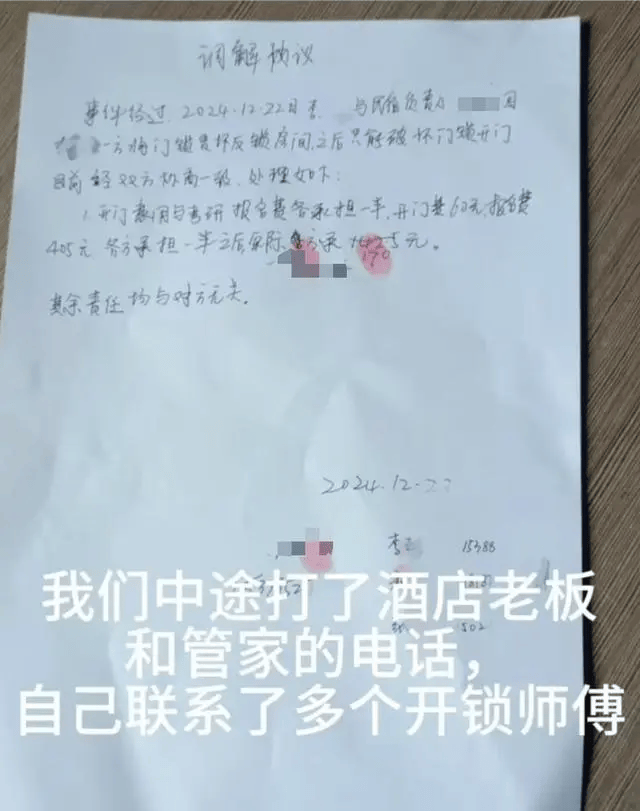 调解协议
事件经过,2024.12.22日李 与民宿负责人 因
一方将门锁损坏反锁房间,之后只能破坏门锁开门
目前经双方协商一致,处理如下:
1.开门费用与考研报名费各承担一半,开门费60元,报名费
405元 各方承担一半之后实际 方承 元。
170
其余责任均与对方无关。
2024.12.22
李 15388
502
我们中途打了酒店老板
和管家的电话,
自己联系了多个开锁师傅